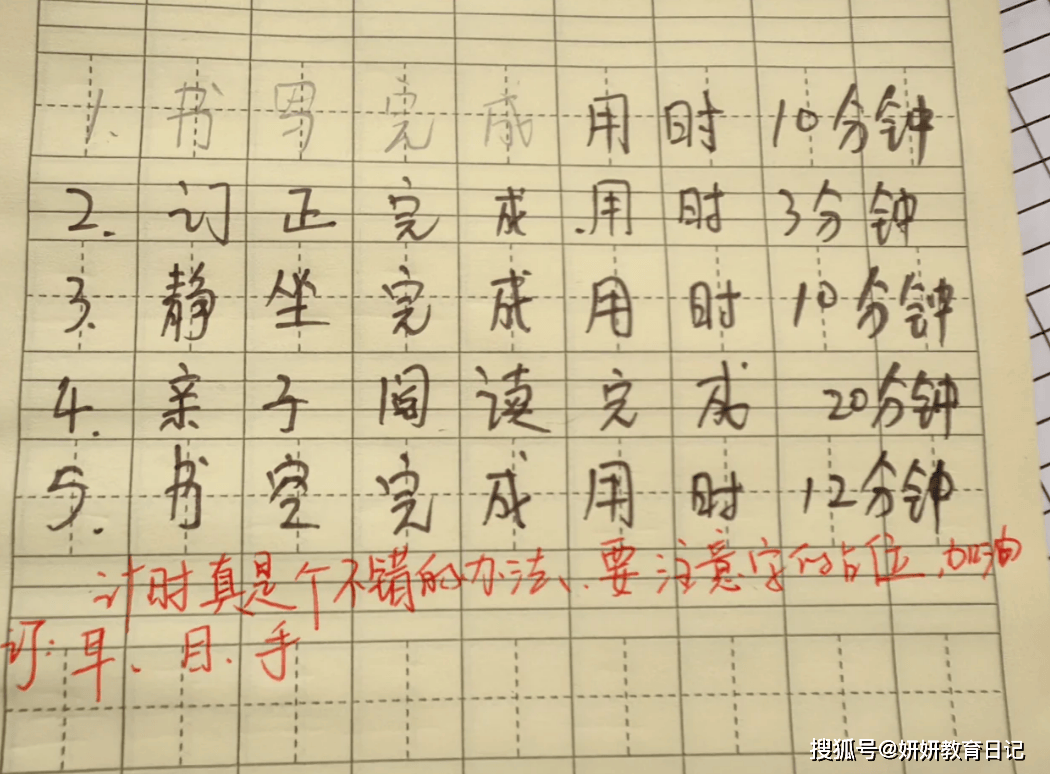 1. 书写完成用时10分钟
2. 订正完成.用时3分钟
3. 静坐完成用时10分钟
4. 亲子阅读完成 20分钟
5. 书空完成用时12分钟
计时真是个不错的办法、要注意字的占位,加油
订:早、目、手
搜狐号@妍妍教育日记